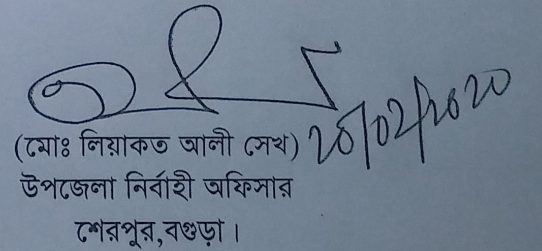 (মোঃ লিয়াকত আলী সেখ) 26/02/2020
উপজেলা নির্বাহী অফিসার
শেরপুর,বগুড়া।